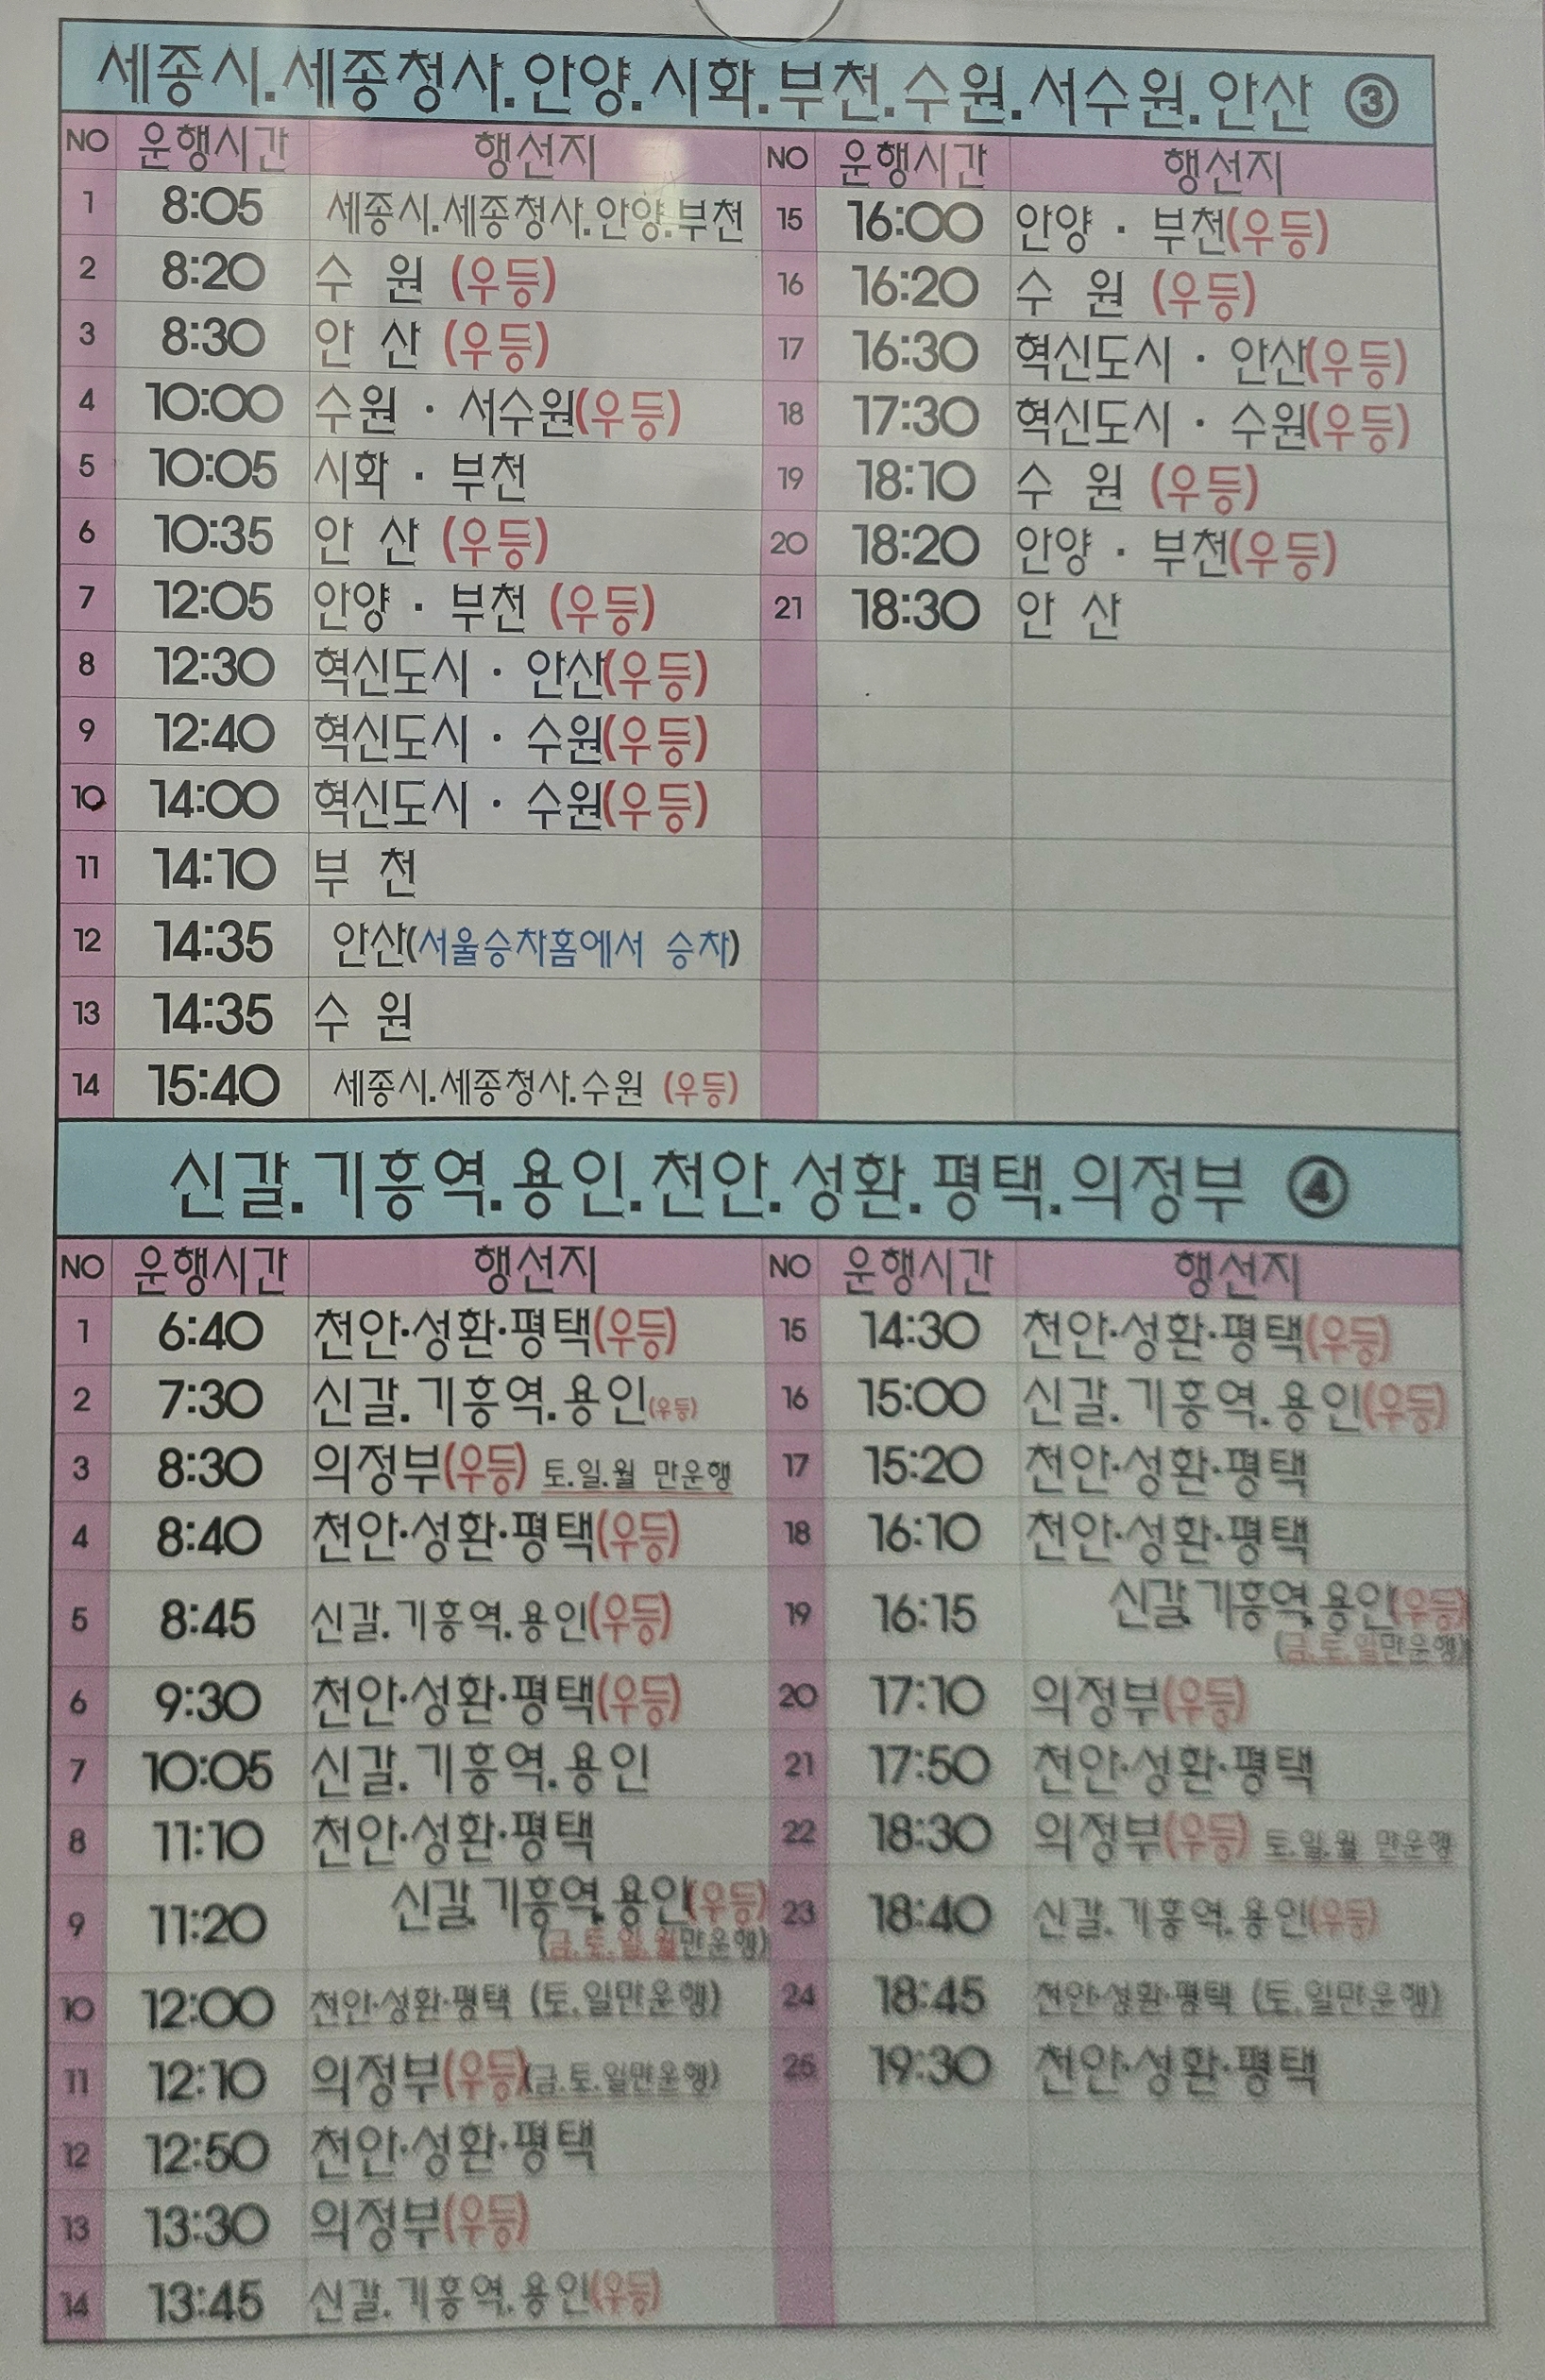 세종시.세종청사.안양.시화.부천.수원.서수원.안산 ③
NO 운행시간 행선지 NO 운행시간 행선지
1 8:05 세종시.세종청사.안양.부천 15 16:00 안양 · 부천(우등)
2 8:20 수 원 (우등) 16 16:20 수 원 (우등)
3 8:30 안 산 (우등) 17 16:30 혁신도시 · 안산(우등)
4 10:00 수원 · 서수원(우등) 18 17:30 혁신도시 · 수원(우등)
5 10:05 시화 · 부천 19 18:10 수 원 (우등)
6 10:35 안 산 (우등) 20 18:20 안양 · 부천(우등)
7 12:05 안양 · 부천 (우등) 21 18:30 안 산
8 12:30 혁신도시 · 안산(우등)
9 12:40 혁신도시 · 수원(우등)
10 14:00 혁신도시 · 수원(우등)
11 14:10 부 천
12 14:35 안산(서울승차홈에서 승차)
13 14:35 수 원
14 15:40 세종시.세종청사.수원 (우등)
신갈.기흥역.용인.천안.성환.평택.의정부 ④
NO 운행시간 행선지 NO 운행시간 행선지
1 6:40 천안·성환·평택(우등) 15 14:30 천안·성환·평택(우등)
2 7:30 신갈.기흥역.용인(우등) 16 15:00 신갈.기흥역.용인(우등)
3 8:30 의정부(우등) 토.일.월 만운행 17 15:20 천안·성환·평택
4 8:40 천안·성환·평택(우등) 18 16:10 천안·성환·평택
5 8:45 신갈.기흥역.용인(우등) 19 16:15 신갈.기흥역.용인(우등)
(금.토.일만운행)
6 9:30 천안·성환·평택(우등) 20 17:10 의정부(우등)
7 10:05 신갈.기흥역.용인 21 17:50 천안·성환·평택
8 11:10 천안·성환·평택 22 18:30 의정부(우등) 토.일.월 만운행
9 11:20 신갈.기흥역.용인(우등) 23 18:40 신갈.기흥역.용인(우등)
(금.토.일.월만운행)
10 12:00 천안·성환·평택 (토.일만운행) 24 18:45 천안·성환·평택 (토.일만운행)
11 12:10 의정부(우등)(금.토.일만운행) 25 19:30 천안·성환·평택
12 12:50 천안·성환·평택
13 13:30 의정부(우등)
14 13:45 신갈.기흥역.용인(우등)